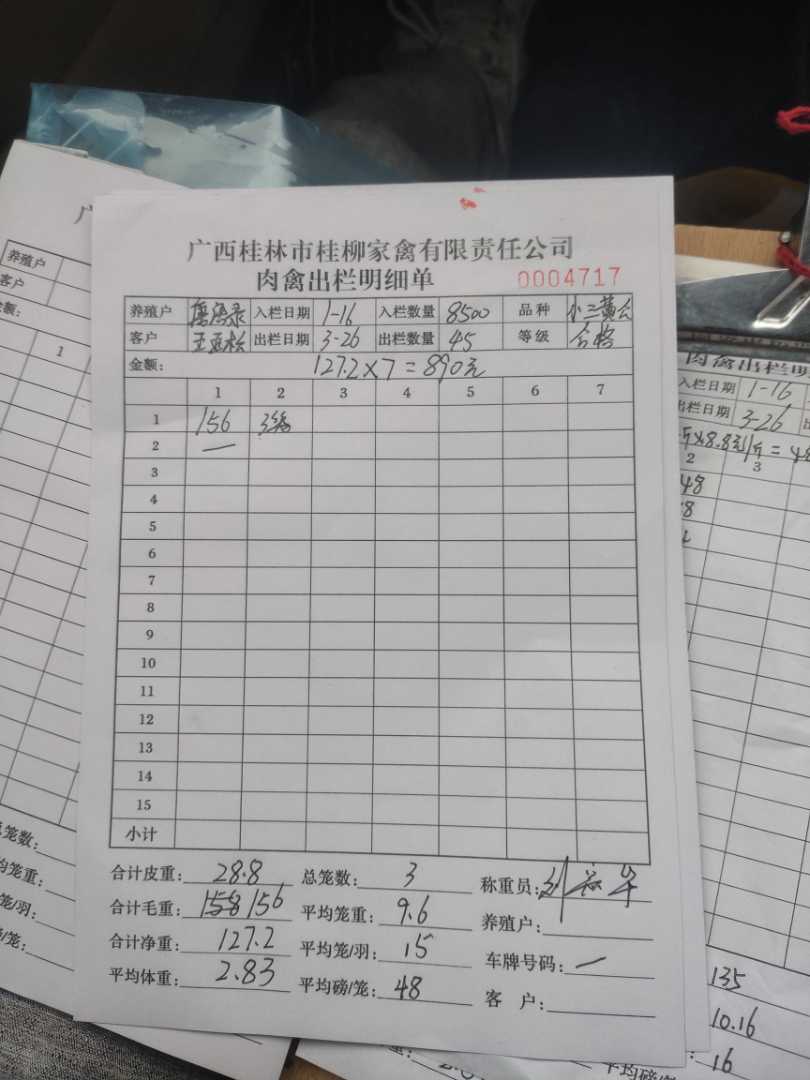 广西桂林市桂柳家禽有限责任公司
肉禽出栏明细单 0004717
养殖户 入栏日期 1-16 入栏数量 8500 品种 小三黄公
客户 出栏日期 3-26 出栏数量 45 等级 合格
金额: 127.2×7=890元
1 2 3 4 5 6 7
1 156 3笼
2 —
3
4
5
6
7
8
9
10
11
12
13
14
15
小计
合计皮重: 28.8 总笼数: 3 称重员:
合计毛重: 158 156 平均笼重: 9.6 养殖户:
合计净重: 127.2 平均笼/羽: 15 车牌号码: —
平均体重: 2.83 平均磅/笼: 48 客 户:
广
养殖户
客户
金额:
1
总笼数:
均笼重:
笼/羽:
/笼:
肉禽出栏明
入栏日期 1-16
出栏日期 3-26
斤×8.8元/斤=48
2 3
48
8
135
10.16
16
平均磅/